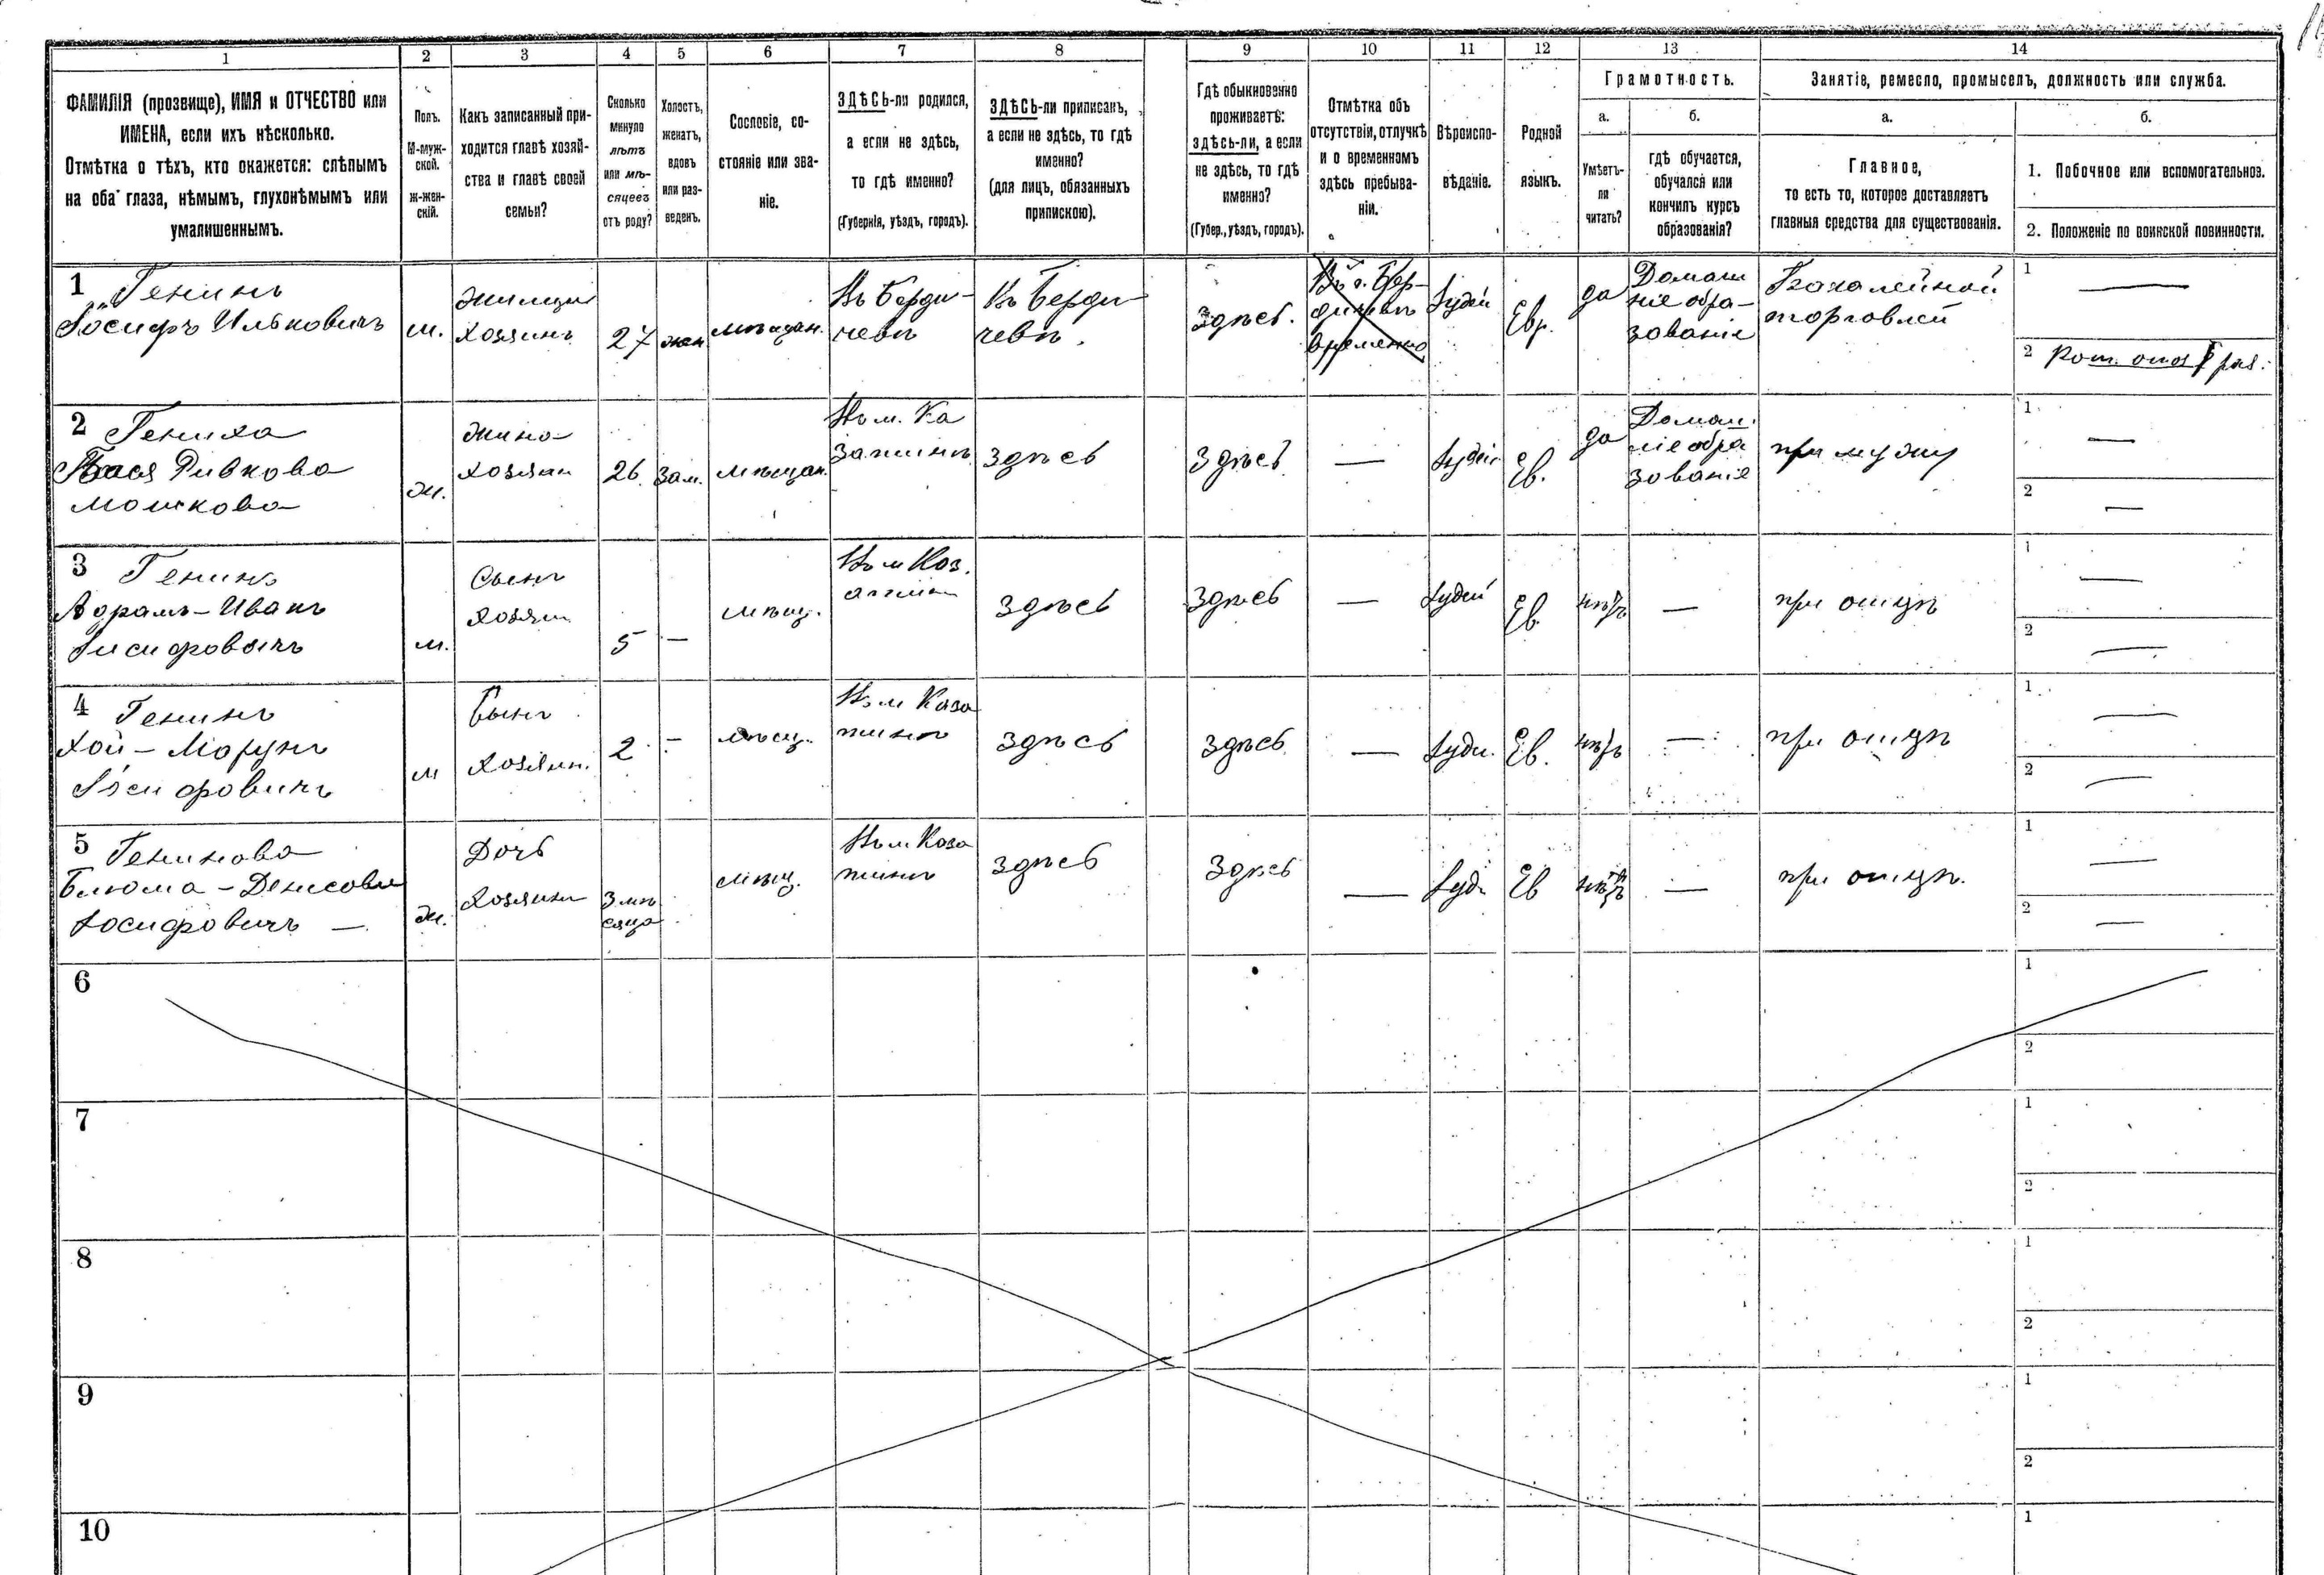 1 2 3 4 5 6 7 8 9 10 11 12 13 14
ФАМИЛІЯ (прозвище), ИМЯ и ОТЧЕСТВО или
ИМЕНА, если ихъ нѣсколько.
Отмѣтка о тѣхъ, кто окажется: слѣпымъ
на оба глаза, нѣмымъ, глухонѣмымъ или
умалишеннымъ.
Полъ.
М-муж-
ской.
ж-жен-
скій.
Какъ записанный при-
ходится главѣ хозяй-
ства и главѣ своей
семьи?
Сколько
минуло
лѣтъ
или мѣ-
сяцевъ
отъ роду?
Холостъ,
женатъ,
вдовъ
или раз-
веденъ.
Сословіе, со-
стояніе или зва-
ніе.
ЗДѢСЬ-ли родился,
а если не здѣсь,
то гдѣ именно?
(Губернія, уѣздъ, городъ).
ЗДѢСЬ-ли приписанъ,
а если не здѣсь, то гдѣ
именно?
(для лицъ, обязанныхъ
припискою).
Гдѣ обыкновенно
проживаетъ:
здѣсь-ли, а если
не здѣсь, то гдѣ
именно?
(Губер., уѣздъ, городъ).
Отмѣтка объ
отсутствіи, отлучкѣ
и о временномъ
здѣсь пребыва-
ніи.
Вѣроиспо-
вѣданіе.
Родной
языкъ.
Грамотность.
а.
Умѣетъ-
ли
читать?
б.
гдѣ обучается,
обучался или
кончилъ курсъ
образованія?
Занятіе, ремесло, промыселъ, должность или служба.
а.
Главное,
то есть то, которое доставляетъ
главныя средства для существованія.
б.
1. Побочное или вспомогательное.
2. Положеніе по воинской повинности.
1 Генинъ
Іосифъ Ильковичъ
м.
хозяинъ
27
жен
мѣщан.
Въ Берди-
чевѣ
Въ Берди
чевѣ.
здѣсь.
Въ г. Бер-
дичевѣ
временно
Іудей
Евр.
да
Домаш
ніе обра-
зованіе
Бакалейной
торговлей
1
2
2 Гениха
Бася Ривкова
Мошкова
ж.
жена
хозяин
26
зам.
мѣщан.
Въ м. Ка
затинѣ
здѣсь
здѣсь
—
Іудей
Ев.
да
Домаш.
ніе обра
зованіе
при мужу
1 —
2 —
3 Генинъ
Абрамъ-Иванъ
Іосифовичъ
м.
Сынъ
хозяин
5
—
мѣщ.
Въ м Каз.
атинѣ
здѣсь
здѣсь
—
Іудей
Ев.
нѣтъ
—
при отцѣ
1 —
2 —
4 Генинъ
Іосифовичъ
м
Сынъ
хозяин.
2
—
мѣщ.
Въ м Каза
тинѣ
здѣсь
здѣсь
—
Іуде.
Ев.
нѣтъ
—
при отцѣ
1 —
2 —
5 Генинова
Блюма-Денисова
Іосифовичъ —
ж.
Дочь
хозяин
3 мѣ
сяца
мѣщ.
Въ м Каза
тинѣ
здѣсь
здѣсь
—
Іуде
Ев
нѣтъ
—
при отцѣ.
1 —
2 —
6
1
2
7
1
2
8
1
2
9
1
2
10
1